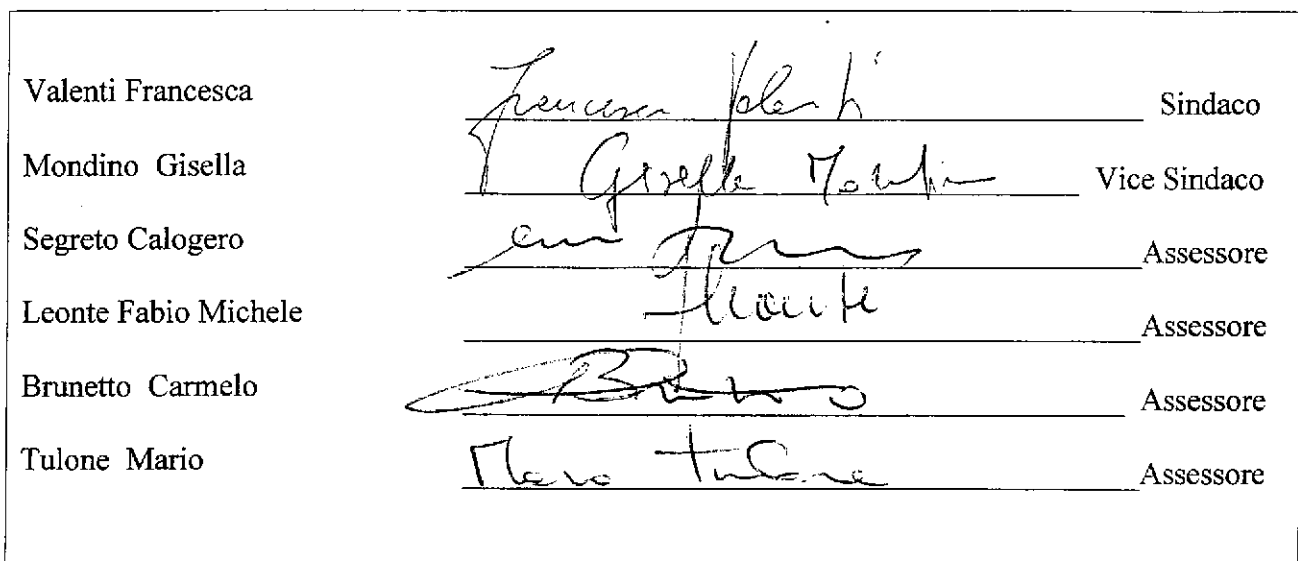 Valenti Francesca Francesca Valenti Sindaco
Mondino Gisella Gisella Mondin Vice Sindaco
Segreto Calogero Assessore
Leonte Fabio Michele Assessore
Brunetto Carmelo Assessore
Tulone Mario Mario Tulone Assessore